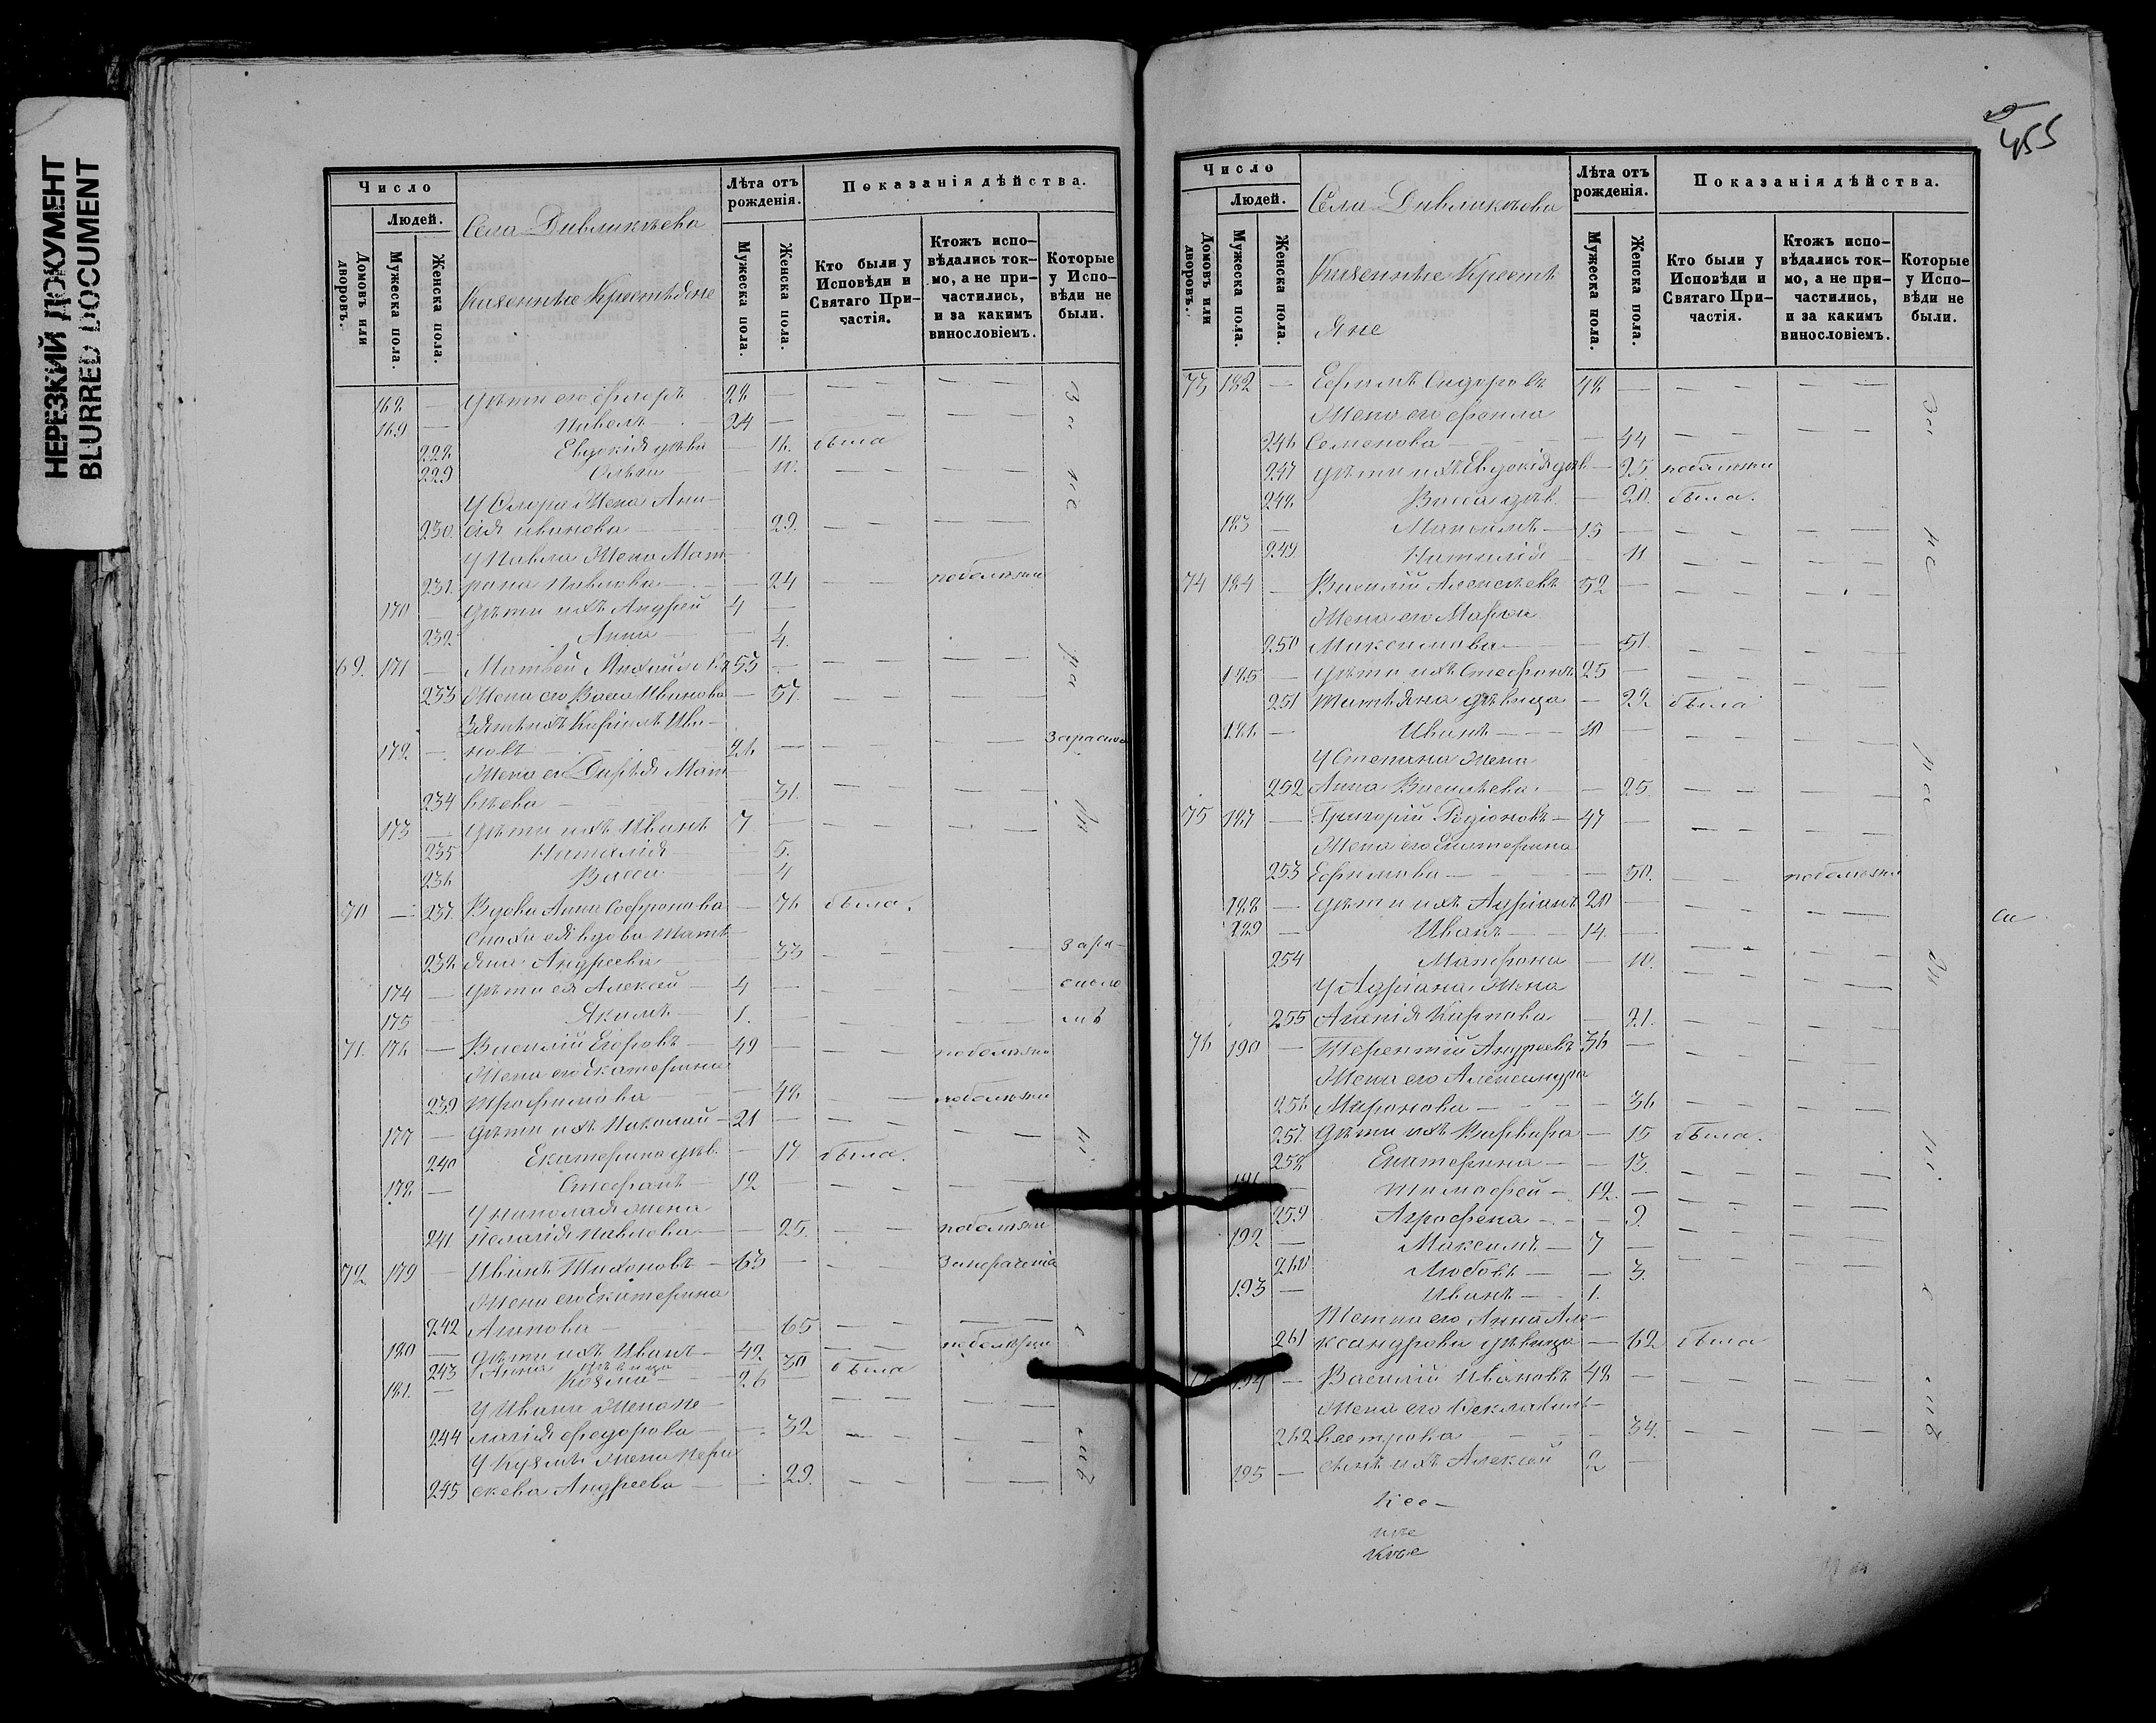 НЕРЕЗКИЙ ДОКУМЕНТ
BLURRED DOCUMENT
Число
Людей.
Домовъ или дворовъ.
Мужеска пола.
Женска пола.
Села Дивликеева
Казенные Крестьяне
Лѣта отъ рожденія.
Мужеска пола.
Женска пола.
Показанія дѣйства.
Кто были у Исповѣди и Святаго Причастія.
Ктожъ исповѣдались токмо, а не причастились, и за какимъ винословіемъ.
Которые у Исповѣди не были.
168 — Дѣти его Флоръ 28 —
169 — Павелъ — 24 —
228 Евдокія дѣвк — 16. была
229 Ольга — 10.
У Флора Жена Ана-
230. сія Иванова — 29.
У Павла Жена Мат-
231. рона Павлова — 24 поболѣзни
170 — Дѣти ихъ Андрей 4 —
232 Анна —
69. 171 — Матвей Михайловъ 55 —
233 Жена его Васса Иванова — 57.
Зять ихъ Кириллъ Ива-
172. — новъ 26 — Зараско
Жена его Дарья Мат-
234 вѣева — 31.
173 — Дѣти ихъ Иванъ 7 —
235 Наталія — 5.
236 Васса — 4
70 — 237. Вдова Анна Софронова — 76 была.
Сноха ея вдова Татъ-
238 яна Андреева — 33 зара-
174 — Дѣти ея Алексей 4 — сколо
175 Якимъ — 1. — мъ
71. 176 — Василій Егоровъ — 49 — поболѣзни
Жена его Екатерина
239 Трофимова — 48 поболѣзни
177 — Дѣти ихъ Николай — 21 —
240 Екатерина дѣв. — 17 была.
178 — Стефанъ — 12 —
У Николая Жена
241. Пелагія Павлова — 25. поболѣзни
72 179 — Иванъ Тихоновъ — 65 —
Жена его Екатерина
242 — 65
180 — Дѣти ихъ Иванъ — 42. поболѣзни
243 Анна дѣвица 30 была
181. — Козма — 26 —
У Ивана Жена Пе-
244 лагія Федорова — 32
У Кузмы Жена Пара-
245 скева Андреева — 29.
За
не
ра
455
Число
Людей.
Домовъ или дворовъ.
Мужеска пола.
Женска пола.
Села Дивликеева
Казенные Кресть
яне
Лѣта отъ рожденія.
Мужеска пола.
Женска пола.
Показанія дѣйства.
Кто были у Исповѣди и Святаго Причастія.
Ктожъ исповѣдались токмо, а не причастились, и за какимъ винословіемъ.
Которые у Исповѣди не были.
73 182 — Ефимъ Сидоровъ 48 —
Жена его Фекла
246 Семенова — 44
247 Дѣти ихъ Евдокія дѣв — 25. поболѣзни
248 Васса дѣв. — 20. была.
183 — Максимъ — 15 —
249 Наталія — 11
74 184 — Василій Алексѣевъ 52 —
Жена его Марфа
250 Максимова — 51.
185 — Дѣти ихъ Стефанъ 25 —
251 Татьяна дѣвица — 22 была
186 — Иванъ —
У Степана Жена
252 Анна Васильева — 25.
75 187 — Григорій Родіоновъ — 47 —
Жена его Екатерина
253 Ефимова — 50. поболѣзни
188 — Дѣти ихъ Адріанъ 20 —
189 — Иванъ — 14. —
254 Матрона — 10.
У Адріана Жена
255 Агапія Карпова — 21.
76 190 — Терентій Андреевъ 36 —
Жена его Александра
256 Миронова — 36
257. Дѣти ихъ Варвара — 15 была.
258 Екатерина — 13.
191 — Тимофей — 12. —
259 Агрофена — 9.
192 — Максимъ — 7 —
260 Любовь — 3.
193 — Иванъ — 1.
Тетка его Анна Але-
261 ксандрова дѣвица — 62 была
194 — Василій Ивановъ 48 —
Жена его Фекла Сили-
262 вестрова — 34.
195 — Сынъ ихъ Алексей 2 —
За
не
ра